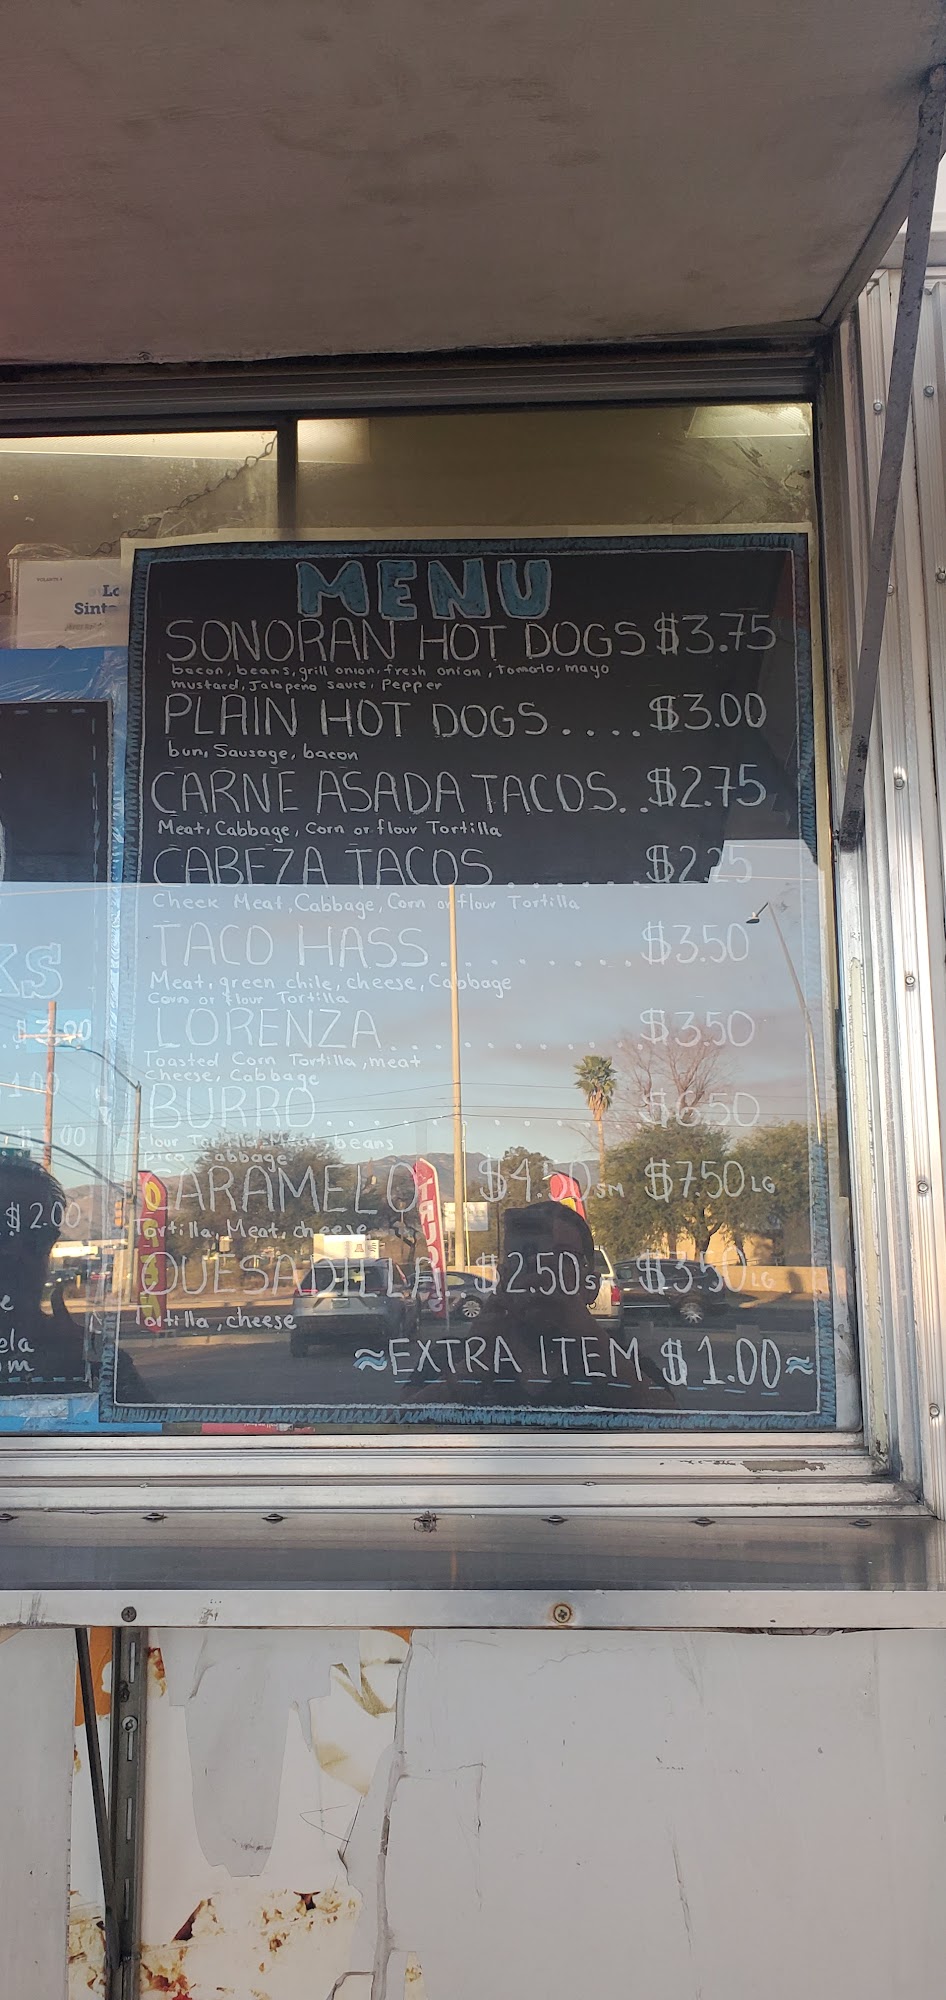 MENU
SONORAN HOT DOGS $3.75
bacon, beans, grill onion, fresh onion, Tomato, mayo
mustard, Jalapeno sauce, Pepper
PLAIN HOT DOGS.... $3.00
bun, Sausage, bacon
CARNE ASADA TACOS.. $2.75
Meat, Cabbage, Corn or flour Tortilla
CABEZA TACOS....... $2.25
Cheek Meat, Cabbage, Corn or flour Tortilla
TACO HASS......... $3.50
Meat, green chile, cheese, Cabbage
Corn or flour Tortilla
LORENZA........... $3.50
Toasted Corn Tortilla, meat
Cheese, Cabbage
BURRO............ $6.50
Flour Tortilla, Meat, beans
pico cabbage
CARAMELO. $4.50 SM $7.50 LG
Tortilla, Meat, cheese
QUESADILLA. $2.50 S $3.50 LG
Tortilla, cheese
≈EXTRA ITEM $1.00≈
Lo
Sinto
KS
$3.00
1.00
$ 00
$2.00
e
ela
om